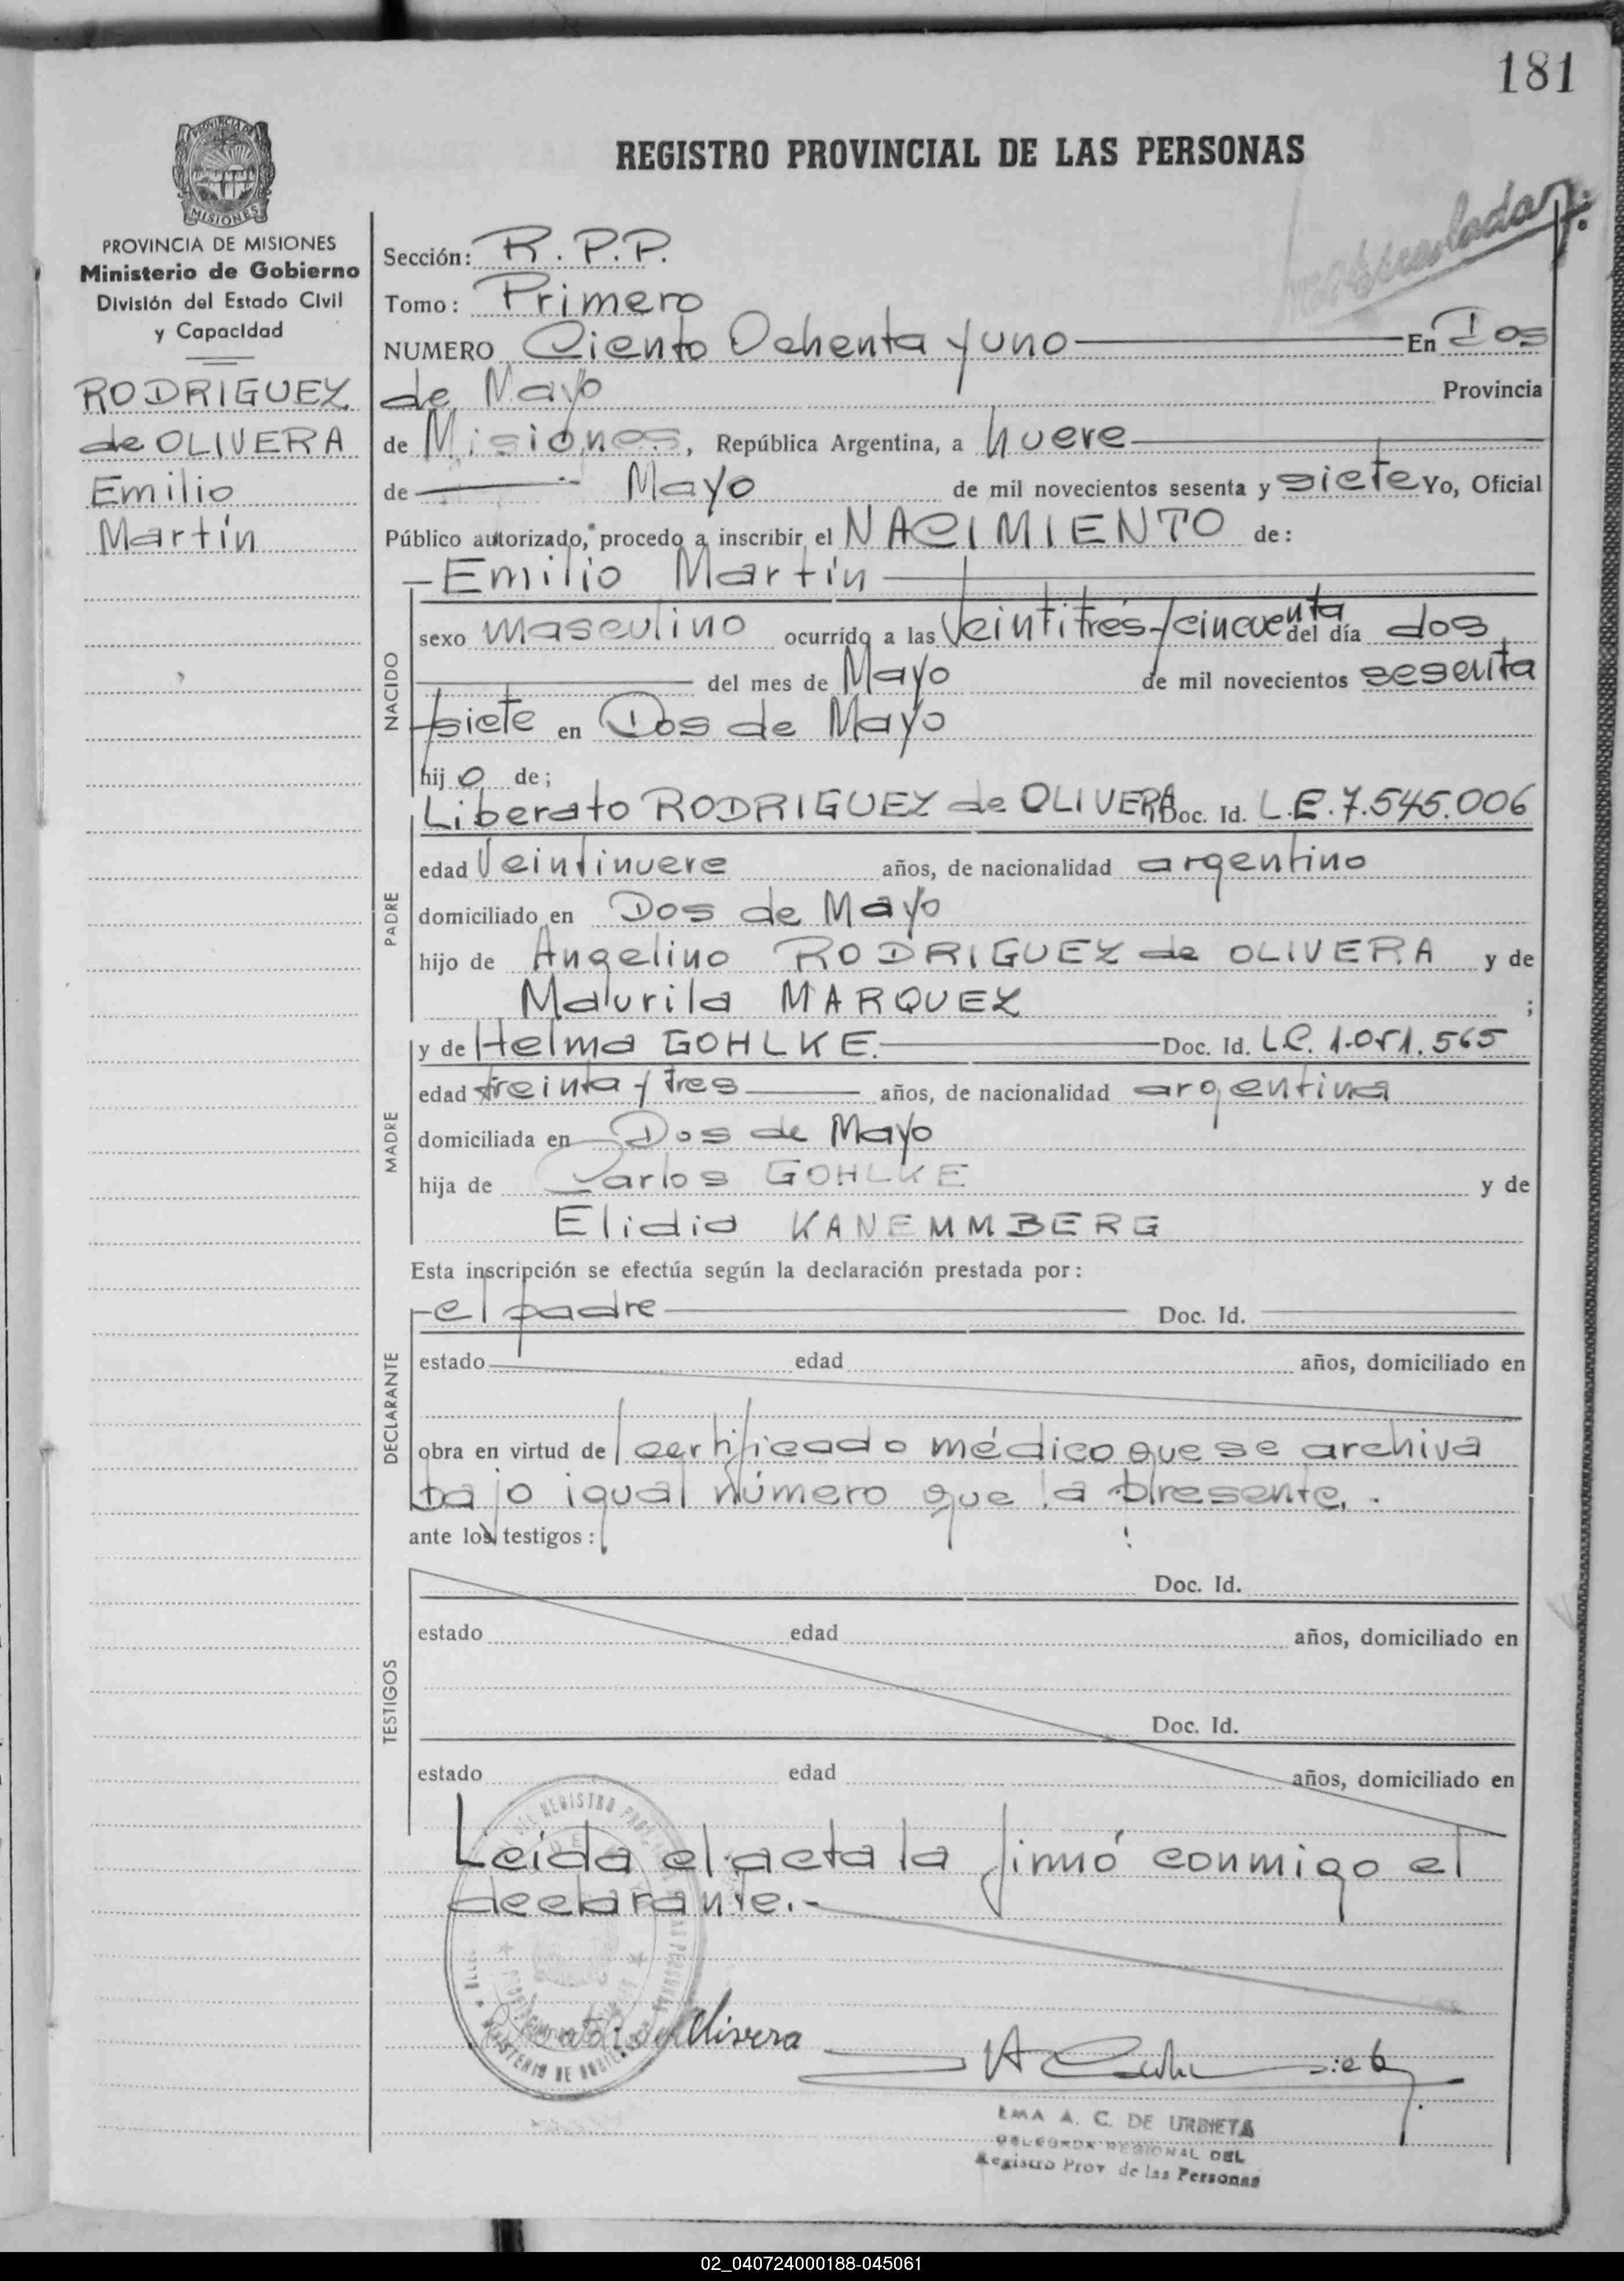 181
REGISTRO PROVINCIAL DE LAS PERSONAS
PROVINCIA DE
MISIONES
PROVINCIA DE MISIONES
Ministerio de Gobierno
División del Estado Civil
y Capacidad
RODRIGUEZ
de OLIVERA
Emilio
Martín
Sección: R.P.P.
Tomo: Primero
NUMERO Ciento Ochenta y uno En Dos
de Mayo Provincia
de Misiones, República Argentina, a nueve
de Mayo de mil novecientos sesenta y siete Yo, Oficial
Público autorizado, procedo a inscribir el NACIMIENTO de:
Emilio Martín
NACIDO
sexo masculino ocurrido a las veintitrés y cincuenta del día dos
del mes de Mayo de mil novecientos sesenta
y siete en Dos de Mayo
hijo de;
Liberato RODRIGUEZ de OLIVERA Doc. Id. L.E. 7.545.006
PADRE
edad Veintinueve años, de nacionalidad argentino
domiciliado en Dos de Mayo
hijo de Angelino RODRIGUEZ de OLIVERA y de
Maurila MARQUEZ ;
y de Helma GOHLKE. Doc. Id. L.C. 1.051.565
MADRE
edad treinta y tres años, de nacionalidad argentina
domiciliada en Dos de Mayo
hija de Carlos GOHLKE y de
Elidia KANEMMBERG
Esta inscripción se efectúa según la declaración prestada por:
el padre Doc. Id.
DECLARANTE
estado edad años, domiciliado en
obra en virtud de certificado médico que se archiva
bajo igual número que la presente.
ante los testigos:
TESTIGOS
Doc. Id.
estado edad años, domiciliado en
Doc. Id.
estado edad años, domiciliado en
Leída el acta la firmó conmigo el
declarante.-
Olivera
EMA A. C. DE URBIETA
DELEGADA REGIONAL DEL
Registro Prov. de las Personas
02_040724000188-045061